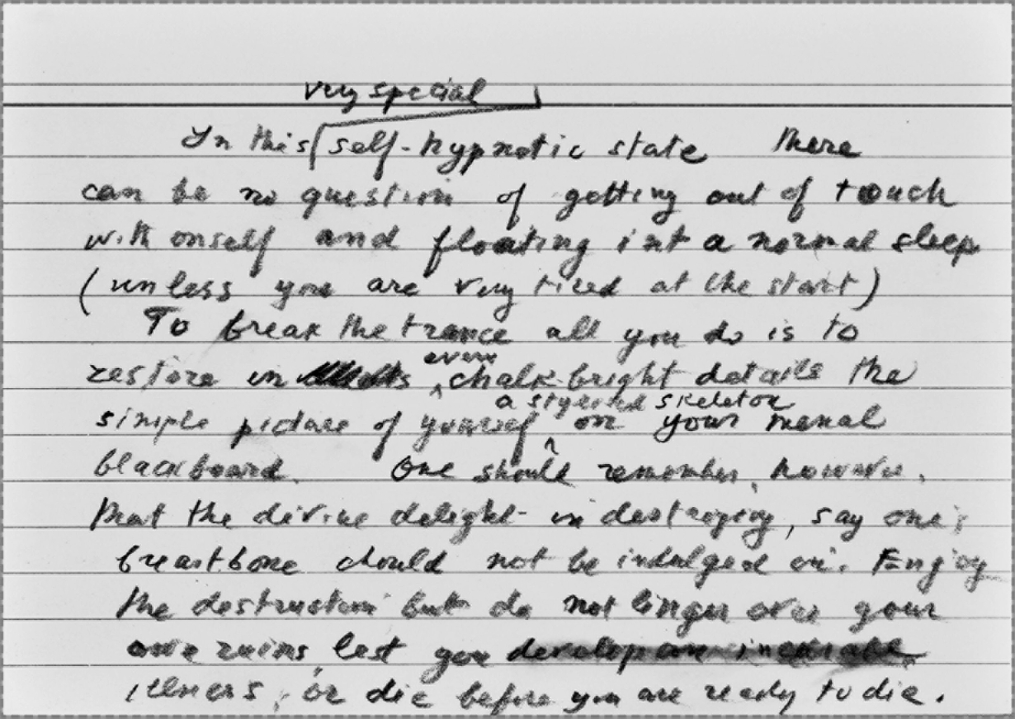 very special
In this self-hypnotic state there
can be no question of getting out of touch
with onself and floating int a normal sleep
(unless you are very tired at the start)
To break the trance all you do is to
every
restore in chalk-bright details the
a stylized skeleton
simple picture of yourself on your menal
blackboard. One should remember, however,
that the divine delight in destroying, say one's
breastbone should not be indulged in. Enjoy
the destruction but do not linger over your
own ruins lest you develop an incurable
illness, or die before you are ready to die.